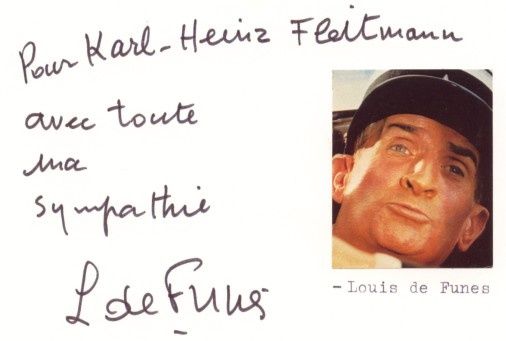 Pour Karl-Heinz Fleitmann
avec toute
ma
sympathie
L de Funès
- Louis de Funes